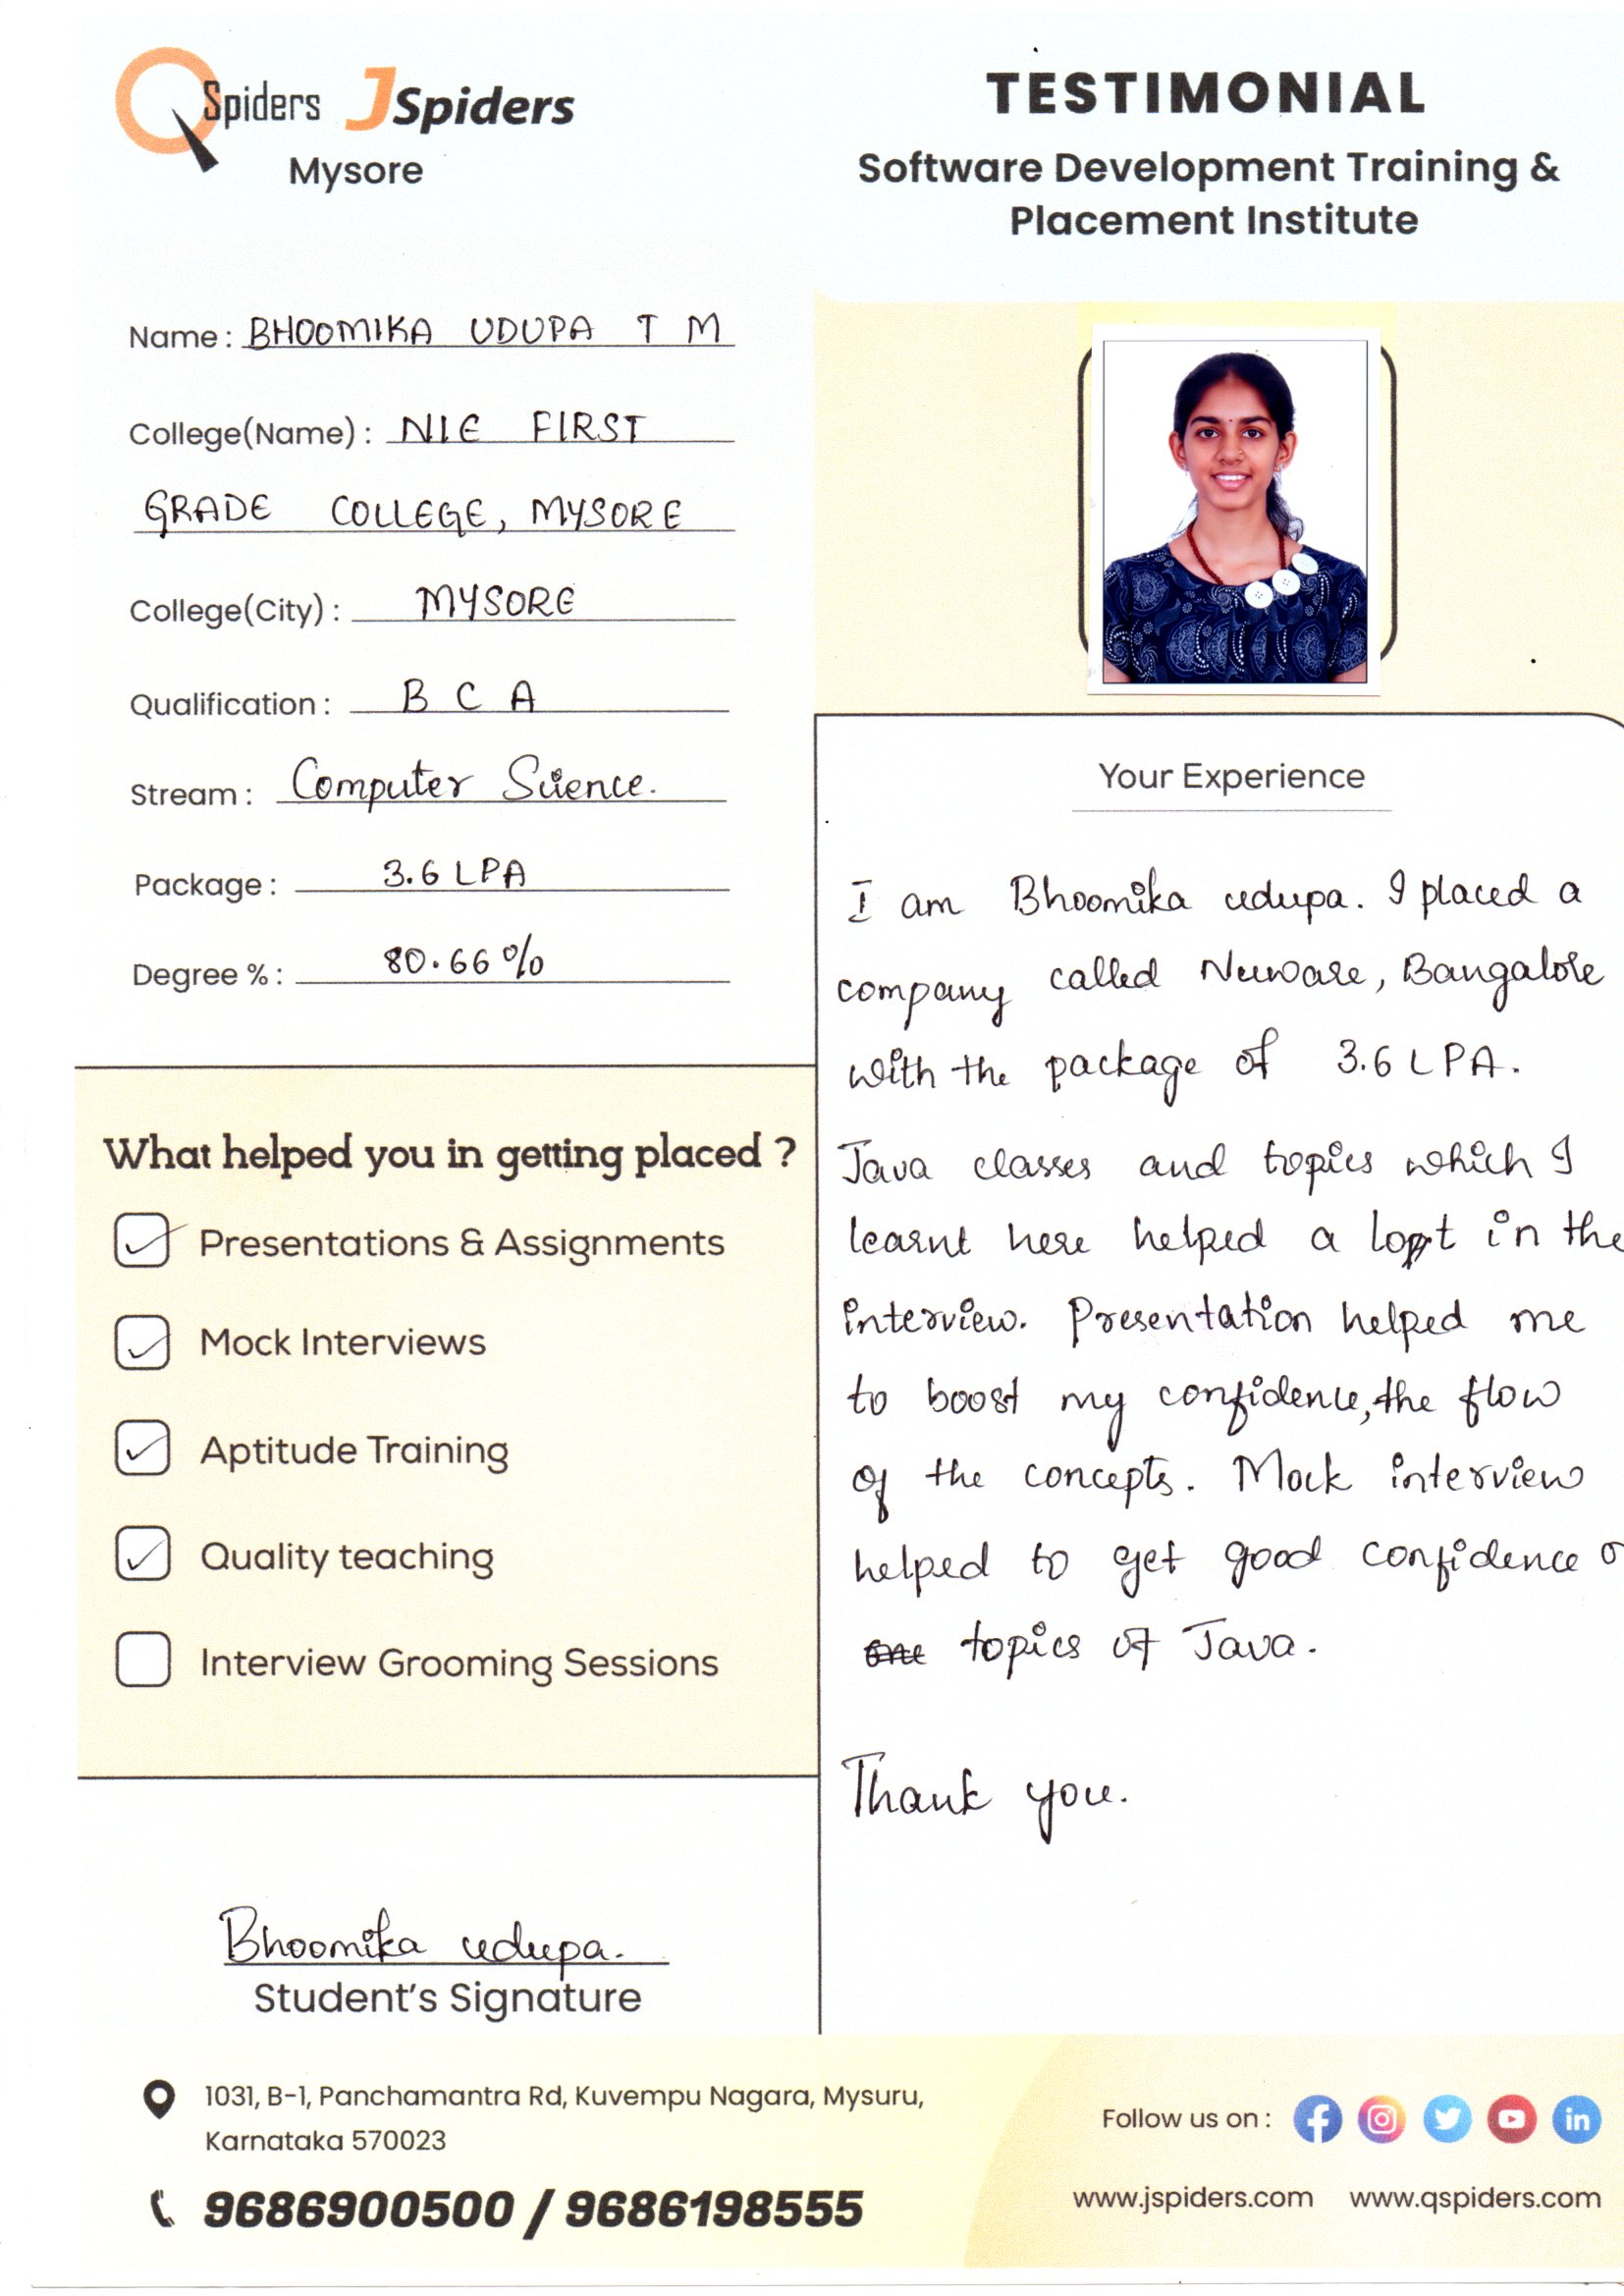 QSpiders JSpiders
Mysore
TESTIMONIAL
Software Development Training &
Placement Institute
Name : BHOOMIKA UDUPA T M
College(Name) : NIE FIRST
GRADE COLLEGE, MYSORE
College(City) : MYSORE
Qualification : B C A
Stream : Computer Science.
Package : 3.6 LPA
Degree % : 80.66 %
What helped you in getting placed ?
Presentations & Assignments
Mock Interviews
Aptitude Training
Quality teaching
Interview Grooming Sessions
Bhoomika udupa.
Student's Signature
Your Experience
I am Bhoomika udupa. I placed a
company called Neuware, Bangalore
with the package of 3.6 LPA.
Java classes and topics which I
learnt here helped a lot in the
interview. Presentation helped me
to boost my confidence, the flow
of the concepts. Mock interview
helped to get good confidence
topics of Java.
Thank you.
1031, B-1, Panchamantra Rd, Kuvempu Nagara, Mysuru,
Karnataka 570023
9686900500 / 9686198555
Follow us on :
www.jspiders.com www.qspiders.com